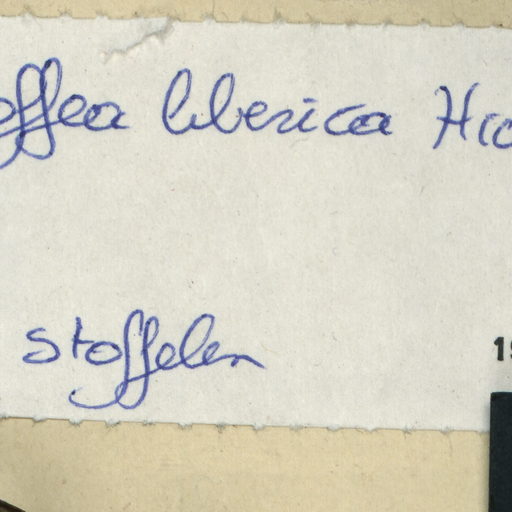 offea liberica Hie
Stoffelen
19